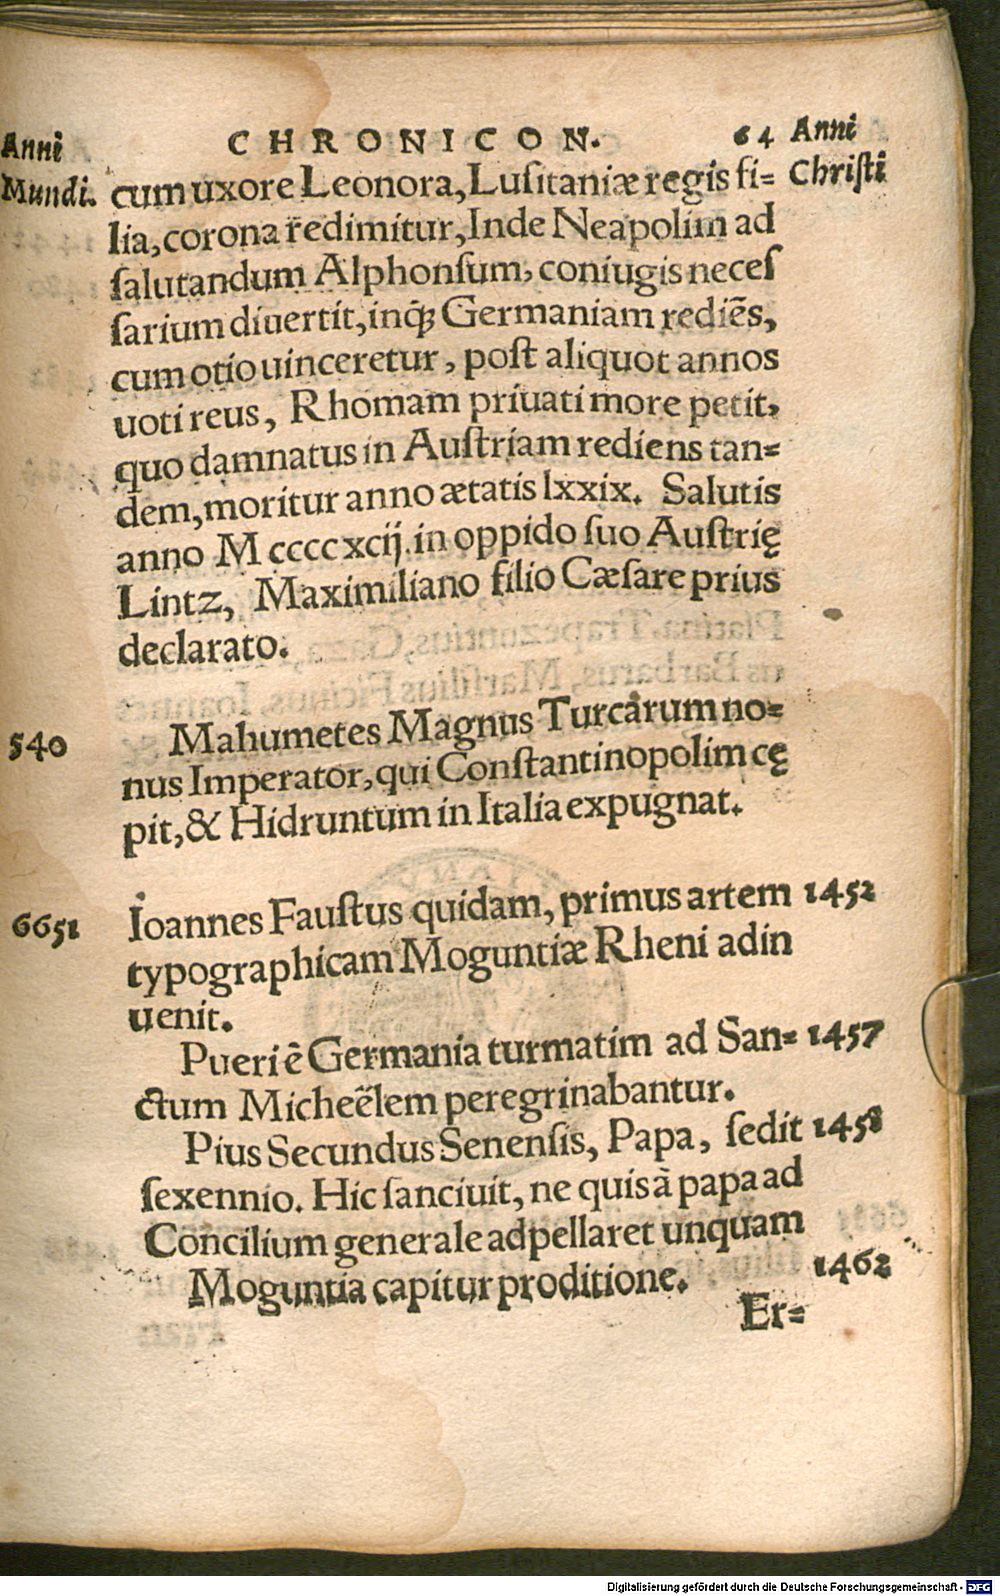 Anni CHRONICON. 64 Anni
Mundi. cum uxore Leonora, Lusitaniæ regis fi= Christi
lia, corona redimitur, Inde Neapolim ad
ſalutandum Alphonſum, coniugis neceſ
ſarium diuertit, inq́; Germaniam rediẽs,
cum otio uinceretur, poſt aliquot annos
uoti reus, Rhomam priuati more petit,
quo damnatus in Auſtriam rediens tan=
dem, moritur anno ætatis lxxix. Salutis
anno M ccccxcij. in oppido ſuo Auſtrię
Lintz, Maximiliano filio Cæſare prius
declarato.
540 Mahumetes Magnus Turcarum no=
nus Imperator, qui Conſtantinopolim cę
pit, & Hidruntum in Italia expugnat.
6651 Ioannes Fauſtus quidam, primus artem 1452
typographicam Moguntiæ Rheni adin
uenit.
Pueri ē Germania turmatim ad San= 1457
ctum Micheẽlem peregrinabantur.
Pius Secundus Senenſis, Papa, ſedit 1458
ſexennio. Hic ſanciuit, ne quis à papa ad
Concilium generale adpellaret unquam
Moguntia capitur proditione. 1462
Er=
Digitalisierung gefördert durch die Deutsche Forschungsgemeinschaft - DFG